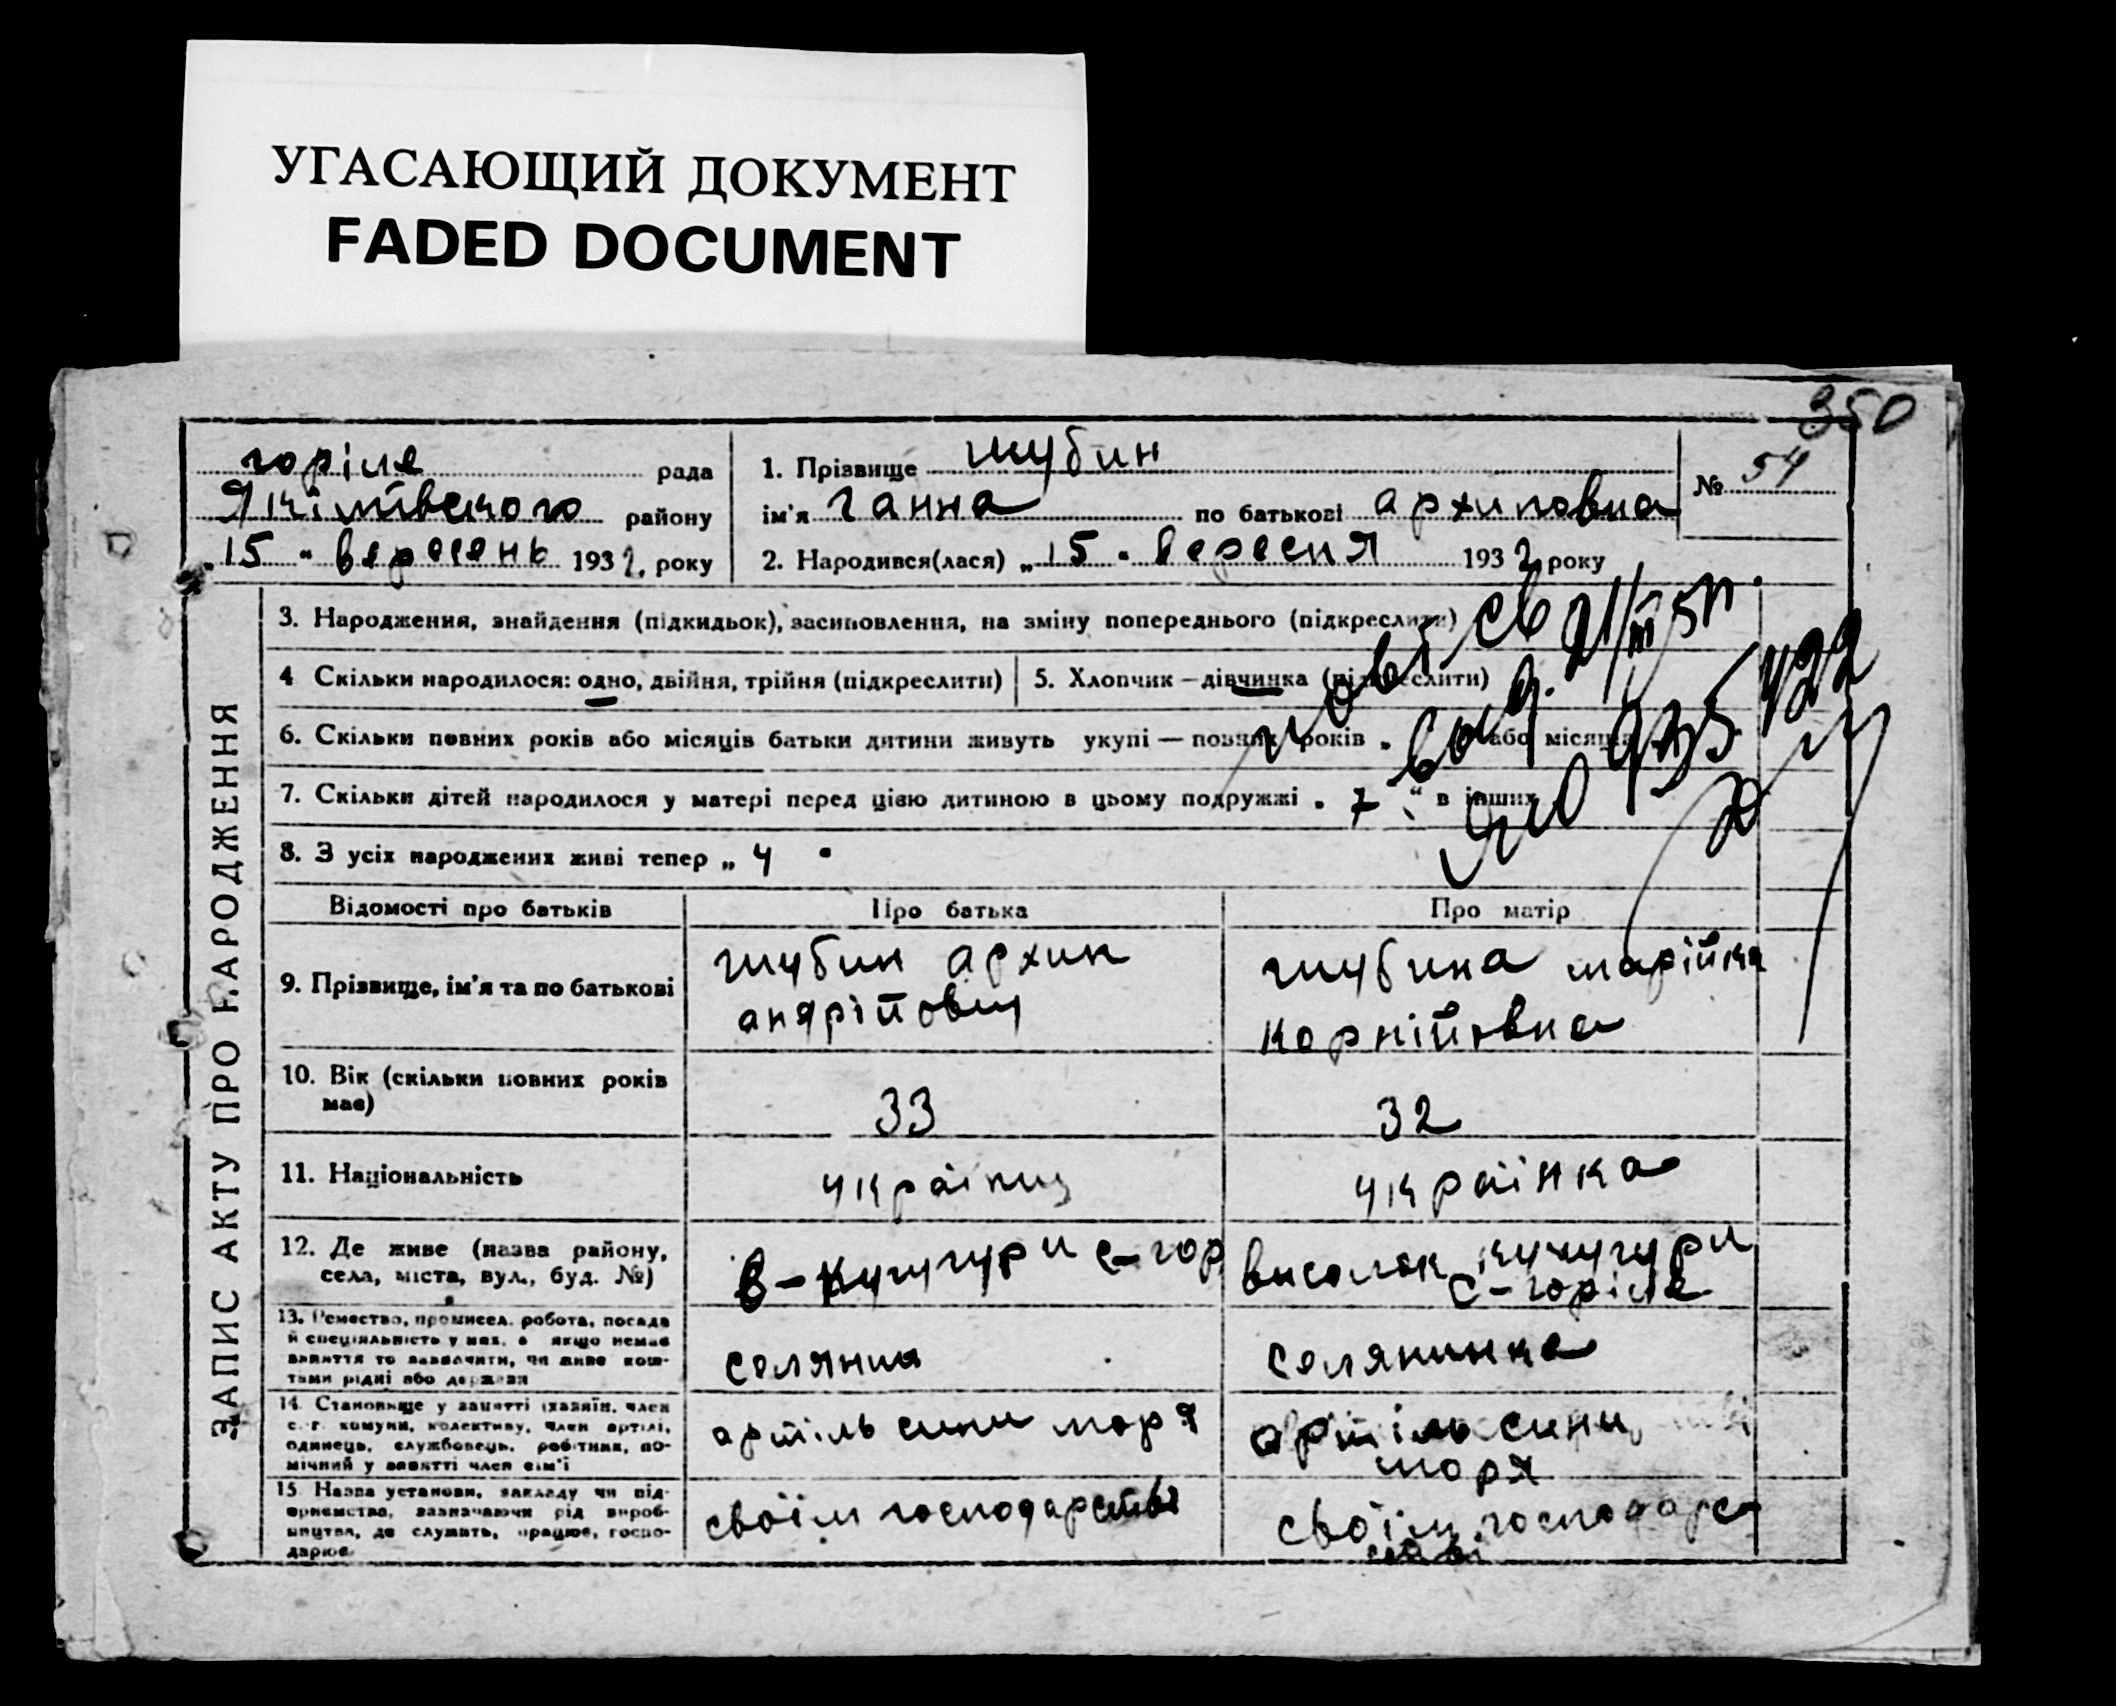 УГАСАЮЩИЙ ДОКУМЕНТ
FADED DOCUMENT
350
горіле рада
Якімівського району
„15“ вересень 1932 року
1. Прізвище шубин
ім'я ганна по батькові архиповна
2. Народився(лася) „15“ вересня 1932 року
№ 54
ЗАПИС АКТУ ПРО НАРОДЖЕННЯ
3. Народження, знайдення (підкидьок), засиновлення, на зміну попереднього (підкреслити)
4 Скільки народилося: одно, двійня, трійня (підкреслити)
5. Хлопчик – дівчинка (підкреслити)
6. Скільки повних років або місяців батьки дитини живуть укупі — повних років „ або місяців
7. Скільки дітей народилося у матері перед цією дитиною в цьому подружжі „ 7 “ в інших
8. З усіх народжених живі тепер „ 4 "
Відомості про батьків
Про батька
Про матір
9. Прізвище, ім'я та по батькові
шубин архип
андрійович
шубина марійка
корнійовна
10. Вік (скільки повних років
має)
33
32
11. Національність
українц
українка
12. Де живе (назва району,
села, міста, вул., буд. №)
в–кучугури с–гор
виселок кучугури
с–горіле
13. Ремество, промисел, робота, посада
й спеціяльність у них, а якщо немає
заняття то зазначити, чи живе кош-
тами рідні або держави
селянин
селянинка
14. Становище у занятті (хазяїн, член
с.-г. комуни, колективу, член артілі,
одинець, службовець, робітник, по-
мічний у занятті член сім'ї
артіль сини моря
артіль сини
моря
15. Назва установи, закладу чи під-
приємства, зазначаючи рід вироб-
ництва, де служить, працює, госпо-
дарює
своїм господарстві
своїм господарс
тві